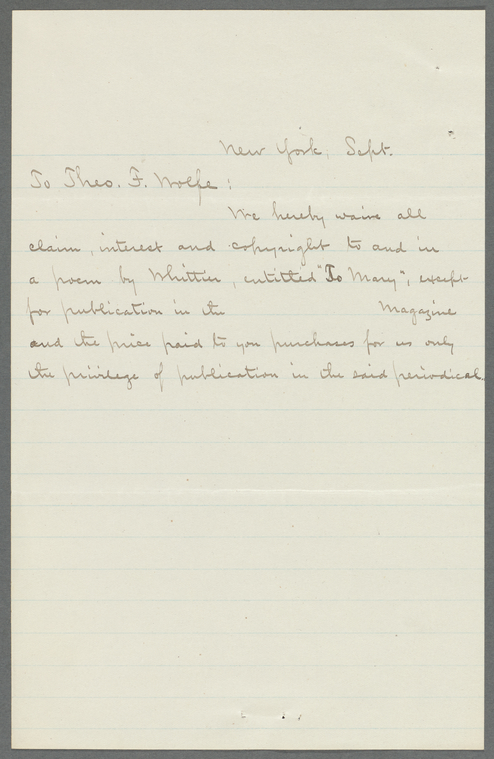 New York, Sept.
To Theo. F. Wolfe:
We hereby waive all
claim, interest and copyright to and in
a poem by Whittier, entitled "To Mary", except
for publication in the Magazine
and the price paid to you purchases for us only
the privilege of publication in the said periodical.